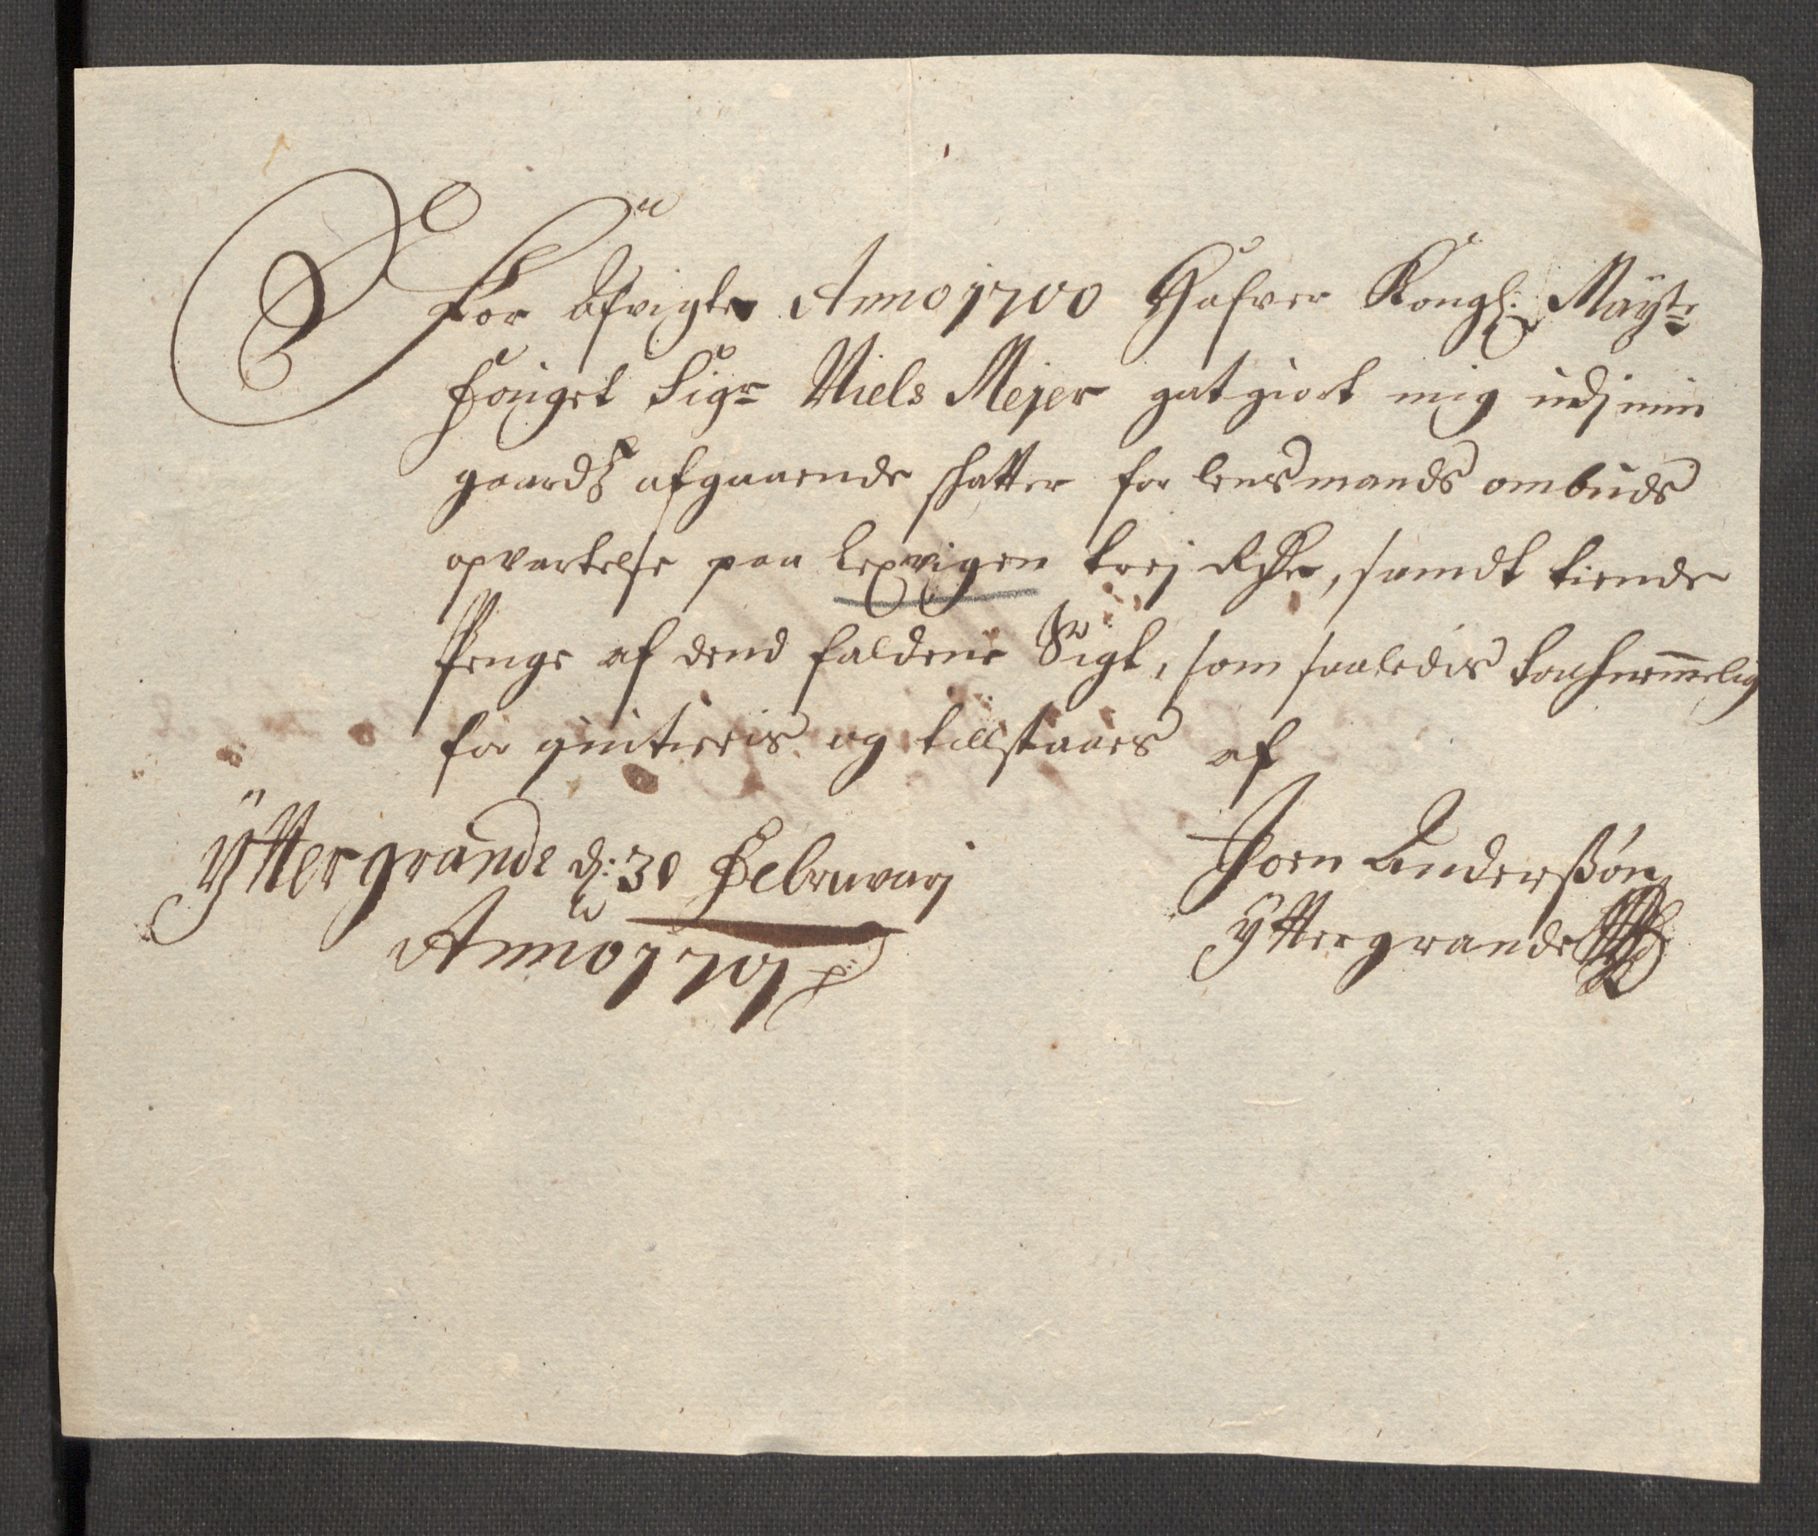 For afvigte Anno 1700 Hafver Kongl: Mayts
fouget Sigr Niels Mejer gotgiort mig udj min
gaards afgaaende skatter for lensmands ombuds
opvartelse paa Lexvigen trej Rdr, samdt tiende
Penge af dend faldene Sigt, som saaledis tachnemmelig
for qviteris og tillstaaes af
Yttergrande d: 30 Februarj
Anno 1701
Joen Anderssøn
Yttergrande